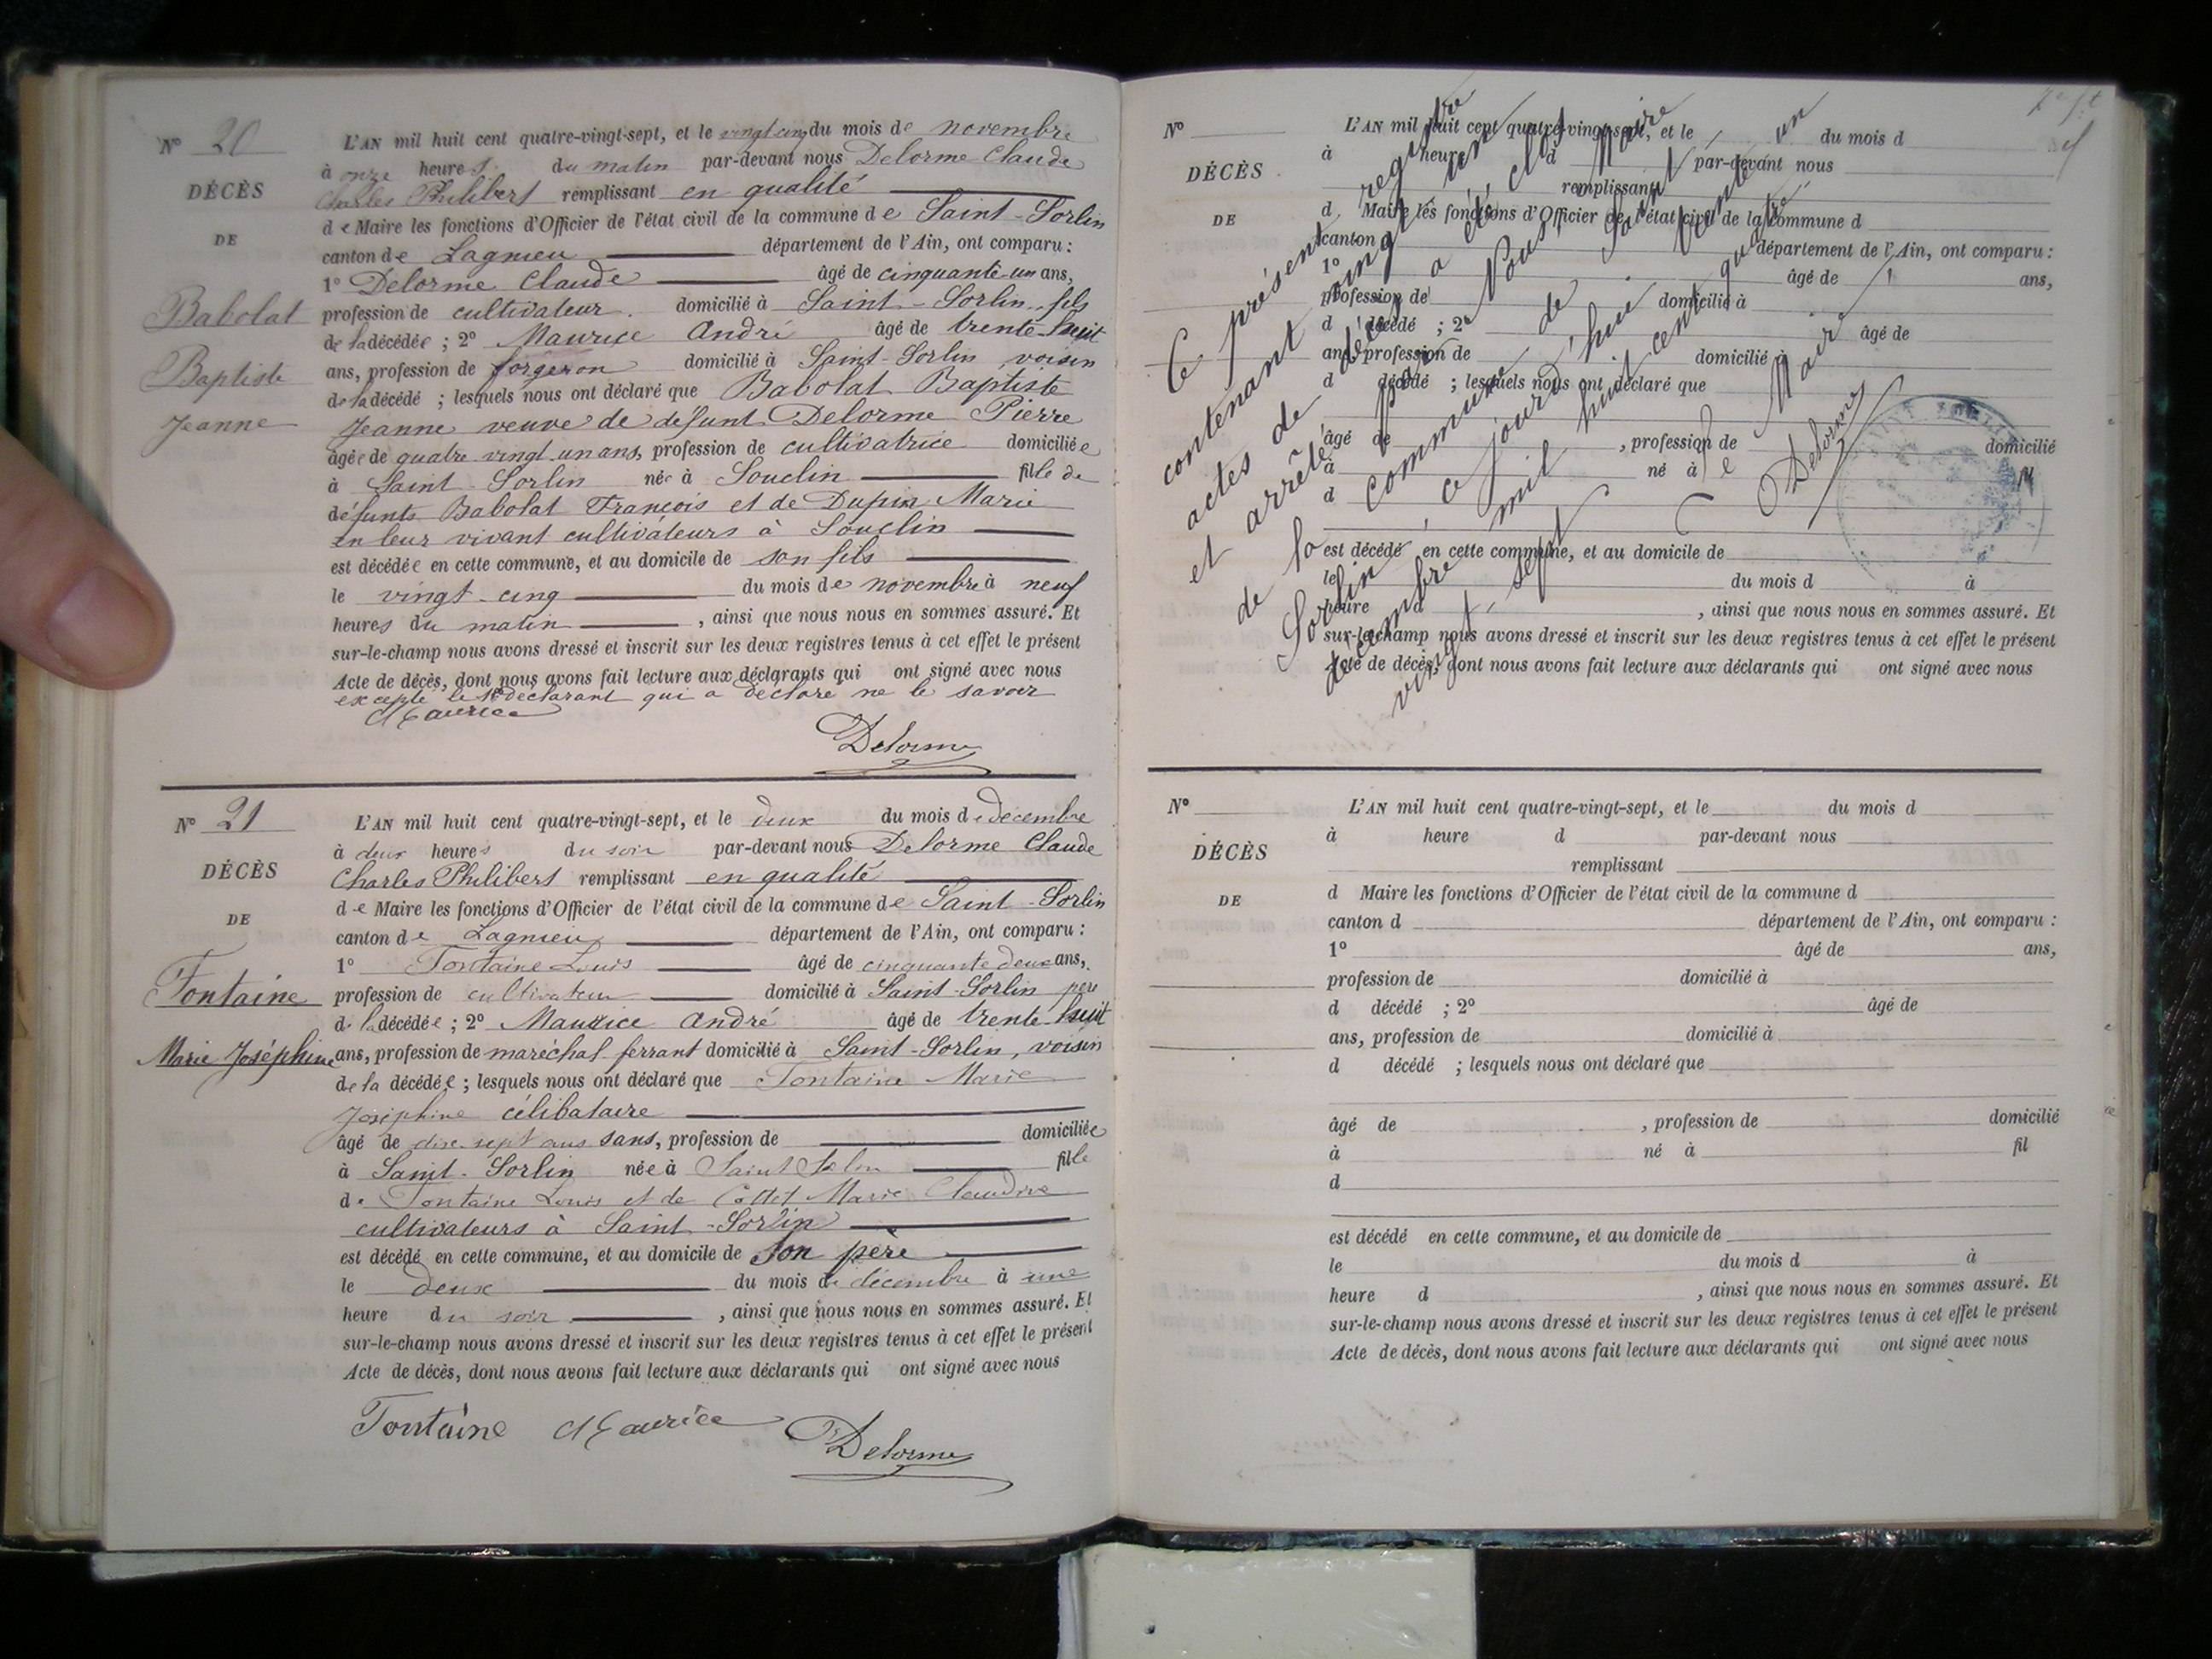 N° 20
DÉCÈS
DE
Babolat
Baptiste
Jeanne
L'AN mil huit cent quatre-vingt-sept, et le vingt cinq du mois de novembre
à onze heures du matin par-devant nous Delorme Claude
Charles Philibert remplissant en qualité
de Maire les fonctions d'Officier de l'état civil de la commune de Saint-Sorlin
canton de Lagnieu département de l'Ain, ont comparu :
1° Delorme Claude âgé de cinquante-un ans,
profession de cultivateur domicilié à Saint-Sorlin, fils
de la décédée ; 2° Maurice André âgé de trente-huit
ans, profession de forgeron domicilié à Saint-Sorlin voisin
de la décédé ; lesquels nous ont déclaré que Babolat Baptiste
Jeanne veuve de défunt Delorme Pierre
âgée de quatre vingt un ans, profession de cultivatrice domiciliée
à Saint-Sorlin née à Souclin fille de
défunts Babolat François et de Dupin Marie
en leur vivant cultivateurs à Souclin
est décédée en cette commune, et au domicile de son fils
le vingt-cinq du mois de novembre à neuf
heures du matin , ainsi que nous nous en sommes assuré. Et
sur-le-champ nous avons dressé et inscrit sur les deux registres tenus à cet effet le présent
Acte de décès, dont nous avons fait lecture aux déclarants qui ont signé avec nous
excepté le 1er déclarant qui a déclaré ne le savoir
Maurice
Delorme
N° 21
DÉCÈS
DE
Fontaine
Marie Joséphine
L'AN mil huit cent quatre-vingt-sept, et le deux du mois de décembre
à deux heures du soir par-devant nous Delorme Claude
Charles Philibert remplissant en qualité
de Maire les fonctions d'Officier de l'état civil de la commune de Saint-Sorlin
canton de Lagnieu département de l'Ain, ont comparu :
1° Fontaine Louis âgé de cinquante deux ans,
profession de cultivateur domicilié à Saint-Sorlin père
de la décédée ; 2° Maurice André âgé de trente-huit
ans, profession de maréchal ferrant domicilié à Saint-Sorlin, voisin
de la décédée ; lesquels nous ont déclaré que Fontaine Marie
Joséphine célibataire
âgé de dix-sept ans sans, profession de domiciliée
à Saint-Sorlin née à Saint Sorlin fille
de Fontaine Louis et de Cottet Marie Claudine
cultivateurs à Saint-Sorlin
est décédé en cette commune, et au domicile de son père
le deux du mois de décembre à une
heure du soir , ainsi que nous nous en sommes assuré. Et
sur-le-champ nous avons dressé et inscrit sur les deux registres tenus à cet effet le présent
Acte de décès, dont nous avons fait lecture aux déclarants qui ont signé avec nous
Fontaine Maurice
Delorme
N°
DÉCÈS
DE
L'AN mil huit cent quatre-vingt-sept, et le du mois d
à heure d par-devant nous
remplissant
d Maire les fonctions d'Officier de l'état civil de la commune d
canton d département de l'Ain, ont comparu :
1° âgé de ans,
profession de domicilié à
d décédé ; 2° âgé de
ans, profession de domicilié à
d décédé ; lesquels nous ont déclaré que
âgé de , profession de domicilié
à né à
d
est décédé en cette commune, et au domicile de
le du mois d à
heure d , ainsi que nous nous en sommes assuré. Et
sur-le-champ nous avons dressé et inscrit sur les deux registres tenus à cet effet le présent
Acte de décès, dont nous avons fait lecture aux déclarants qui ont signé avec nous
Ce présent registre
contenant vingt un
actes de décès a été clos
et arrêté par Nous, Maire
de la commune de Saint
Sorlin, ce jourd'hui trente un
décembre mil huit cent quatre
vingt-sept
Le Maire
Delorme
N°
DÉCÈS
DE
L'AN mil huit cent quatre-vingt-sept, et le du mois d
à heure d par-devant nous
remplissant
d Maire les fonctions d'Officier de l'état civil de la commune d
canton d département de l'Ain, ont comparu :
1° âgé de ans,
profession de domicilié à
d décédé ; 2° âgé de
ans, profession de domicilié à
d décédé ; lesquels nous ont déclaré que
âgé de , profession de domicilié
à né à fil
d
est décédé en cette commune, et au domicile de
le du mois d à
heure d , ainsi que nous nous en sommes assuré. Et
sur-le-champ nous avons dressé et inscrit sur les deux registres tenus à cet effet le présent
Acte de décès, dont nous avons fait lecture aux déclarants qui ont signé avec nous